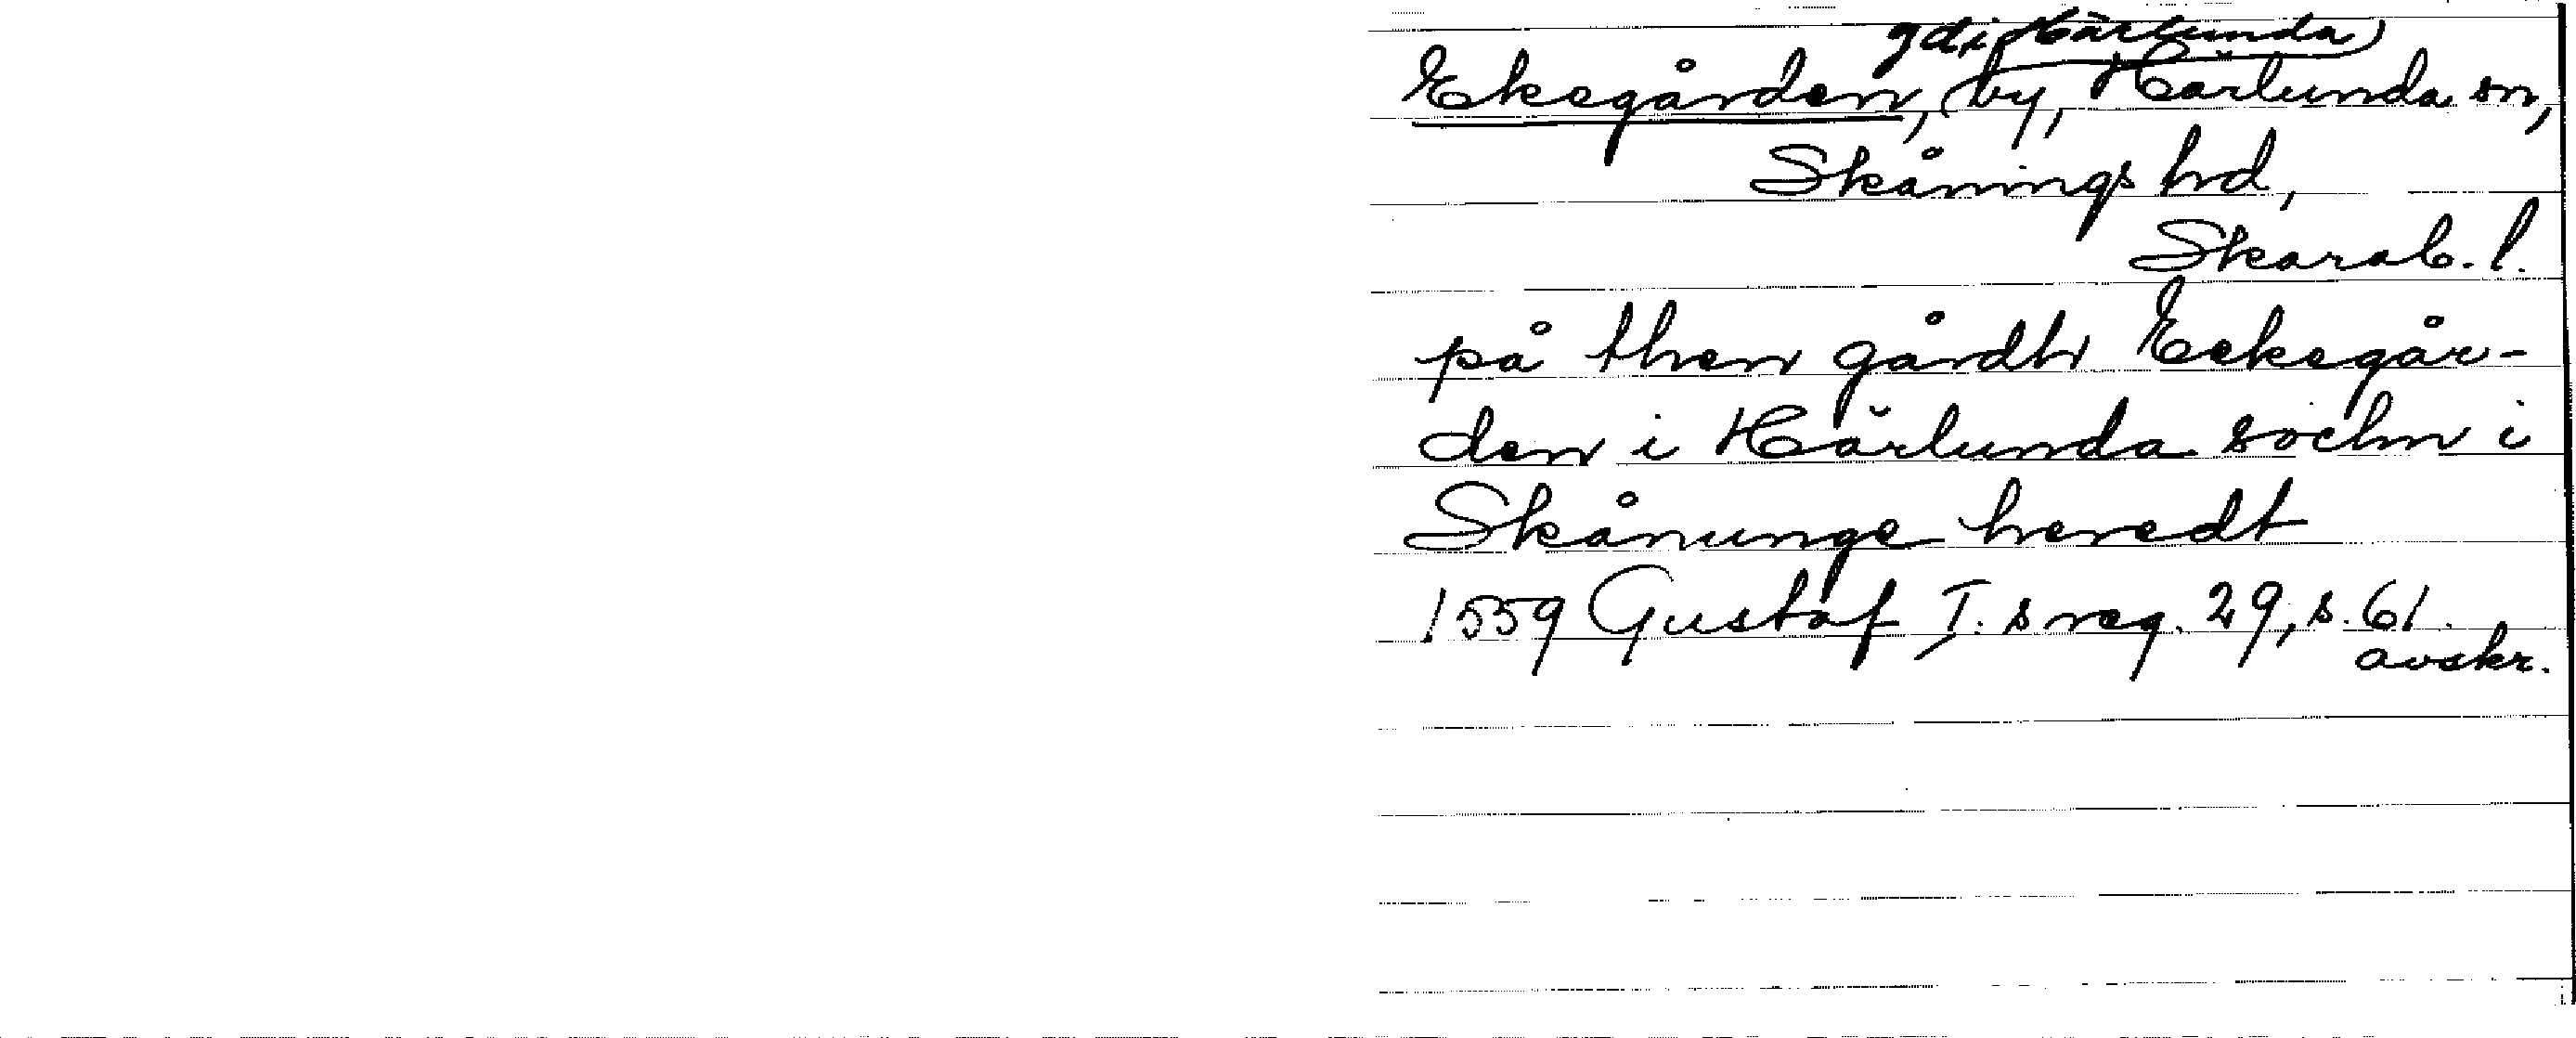 gd i Härlunda)
Ekegården, (by, Härlunda sn,
Skånings hd,
Skarab. l.
på then gårdh Eekegår-
den i Härlunda sochn i
Skånunge heredt
1559 Gustaf I:s reg. 29, s. 61.
avskr.